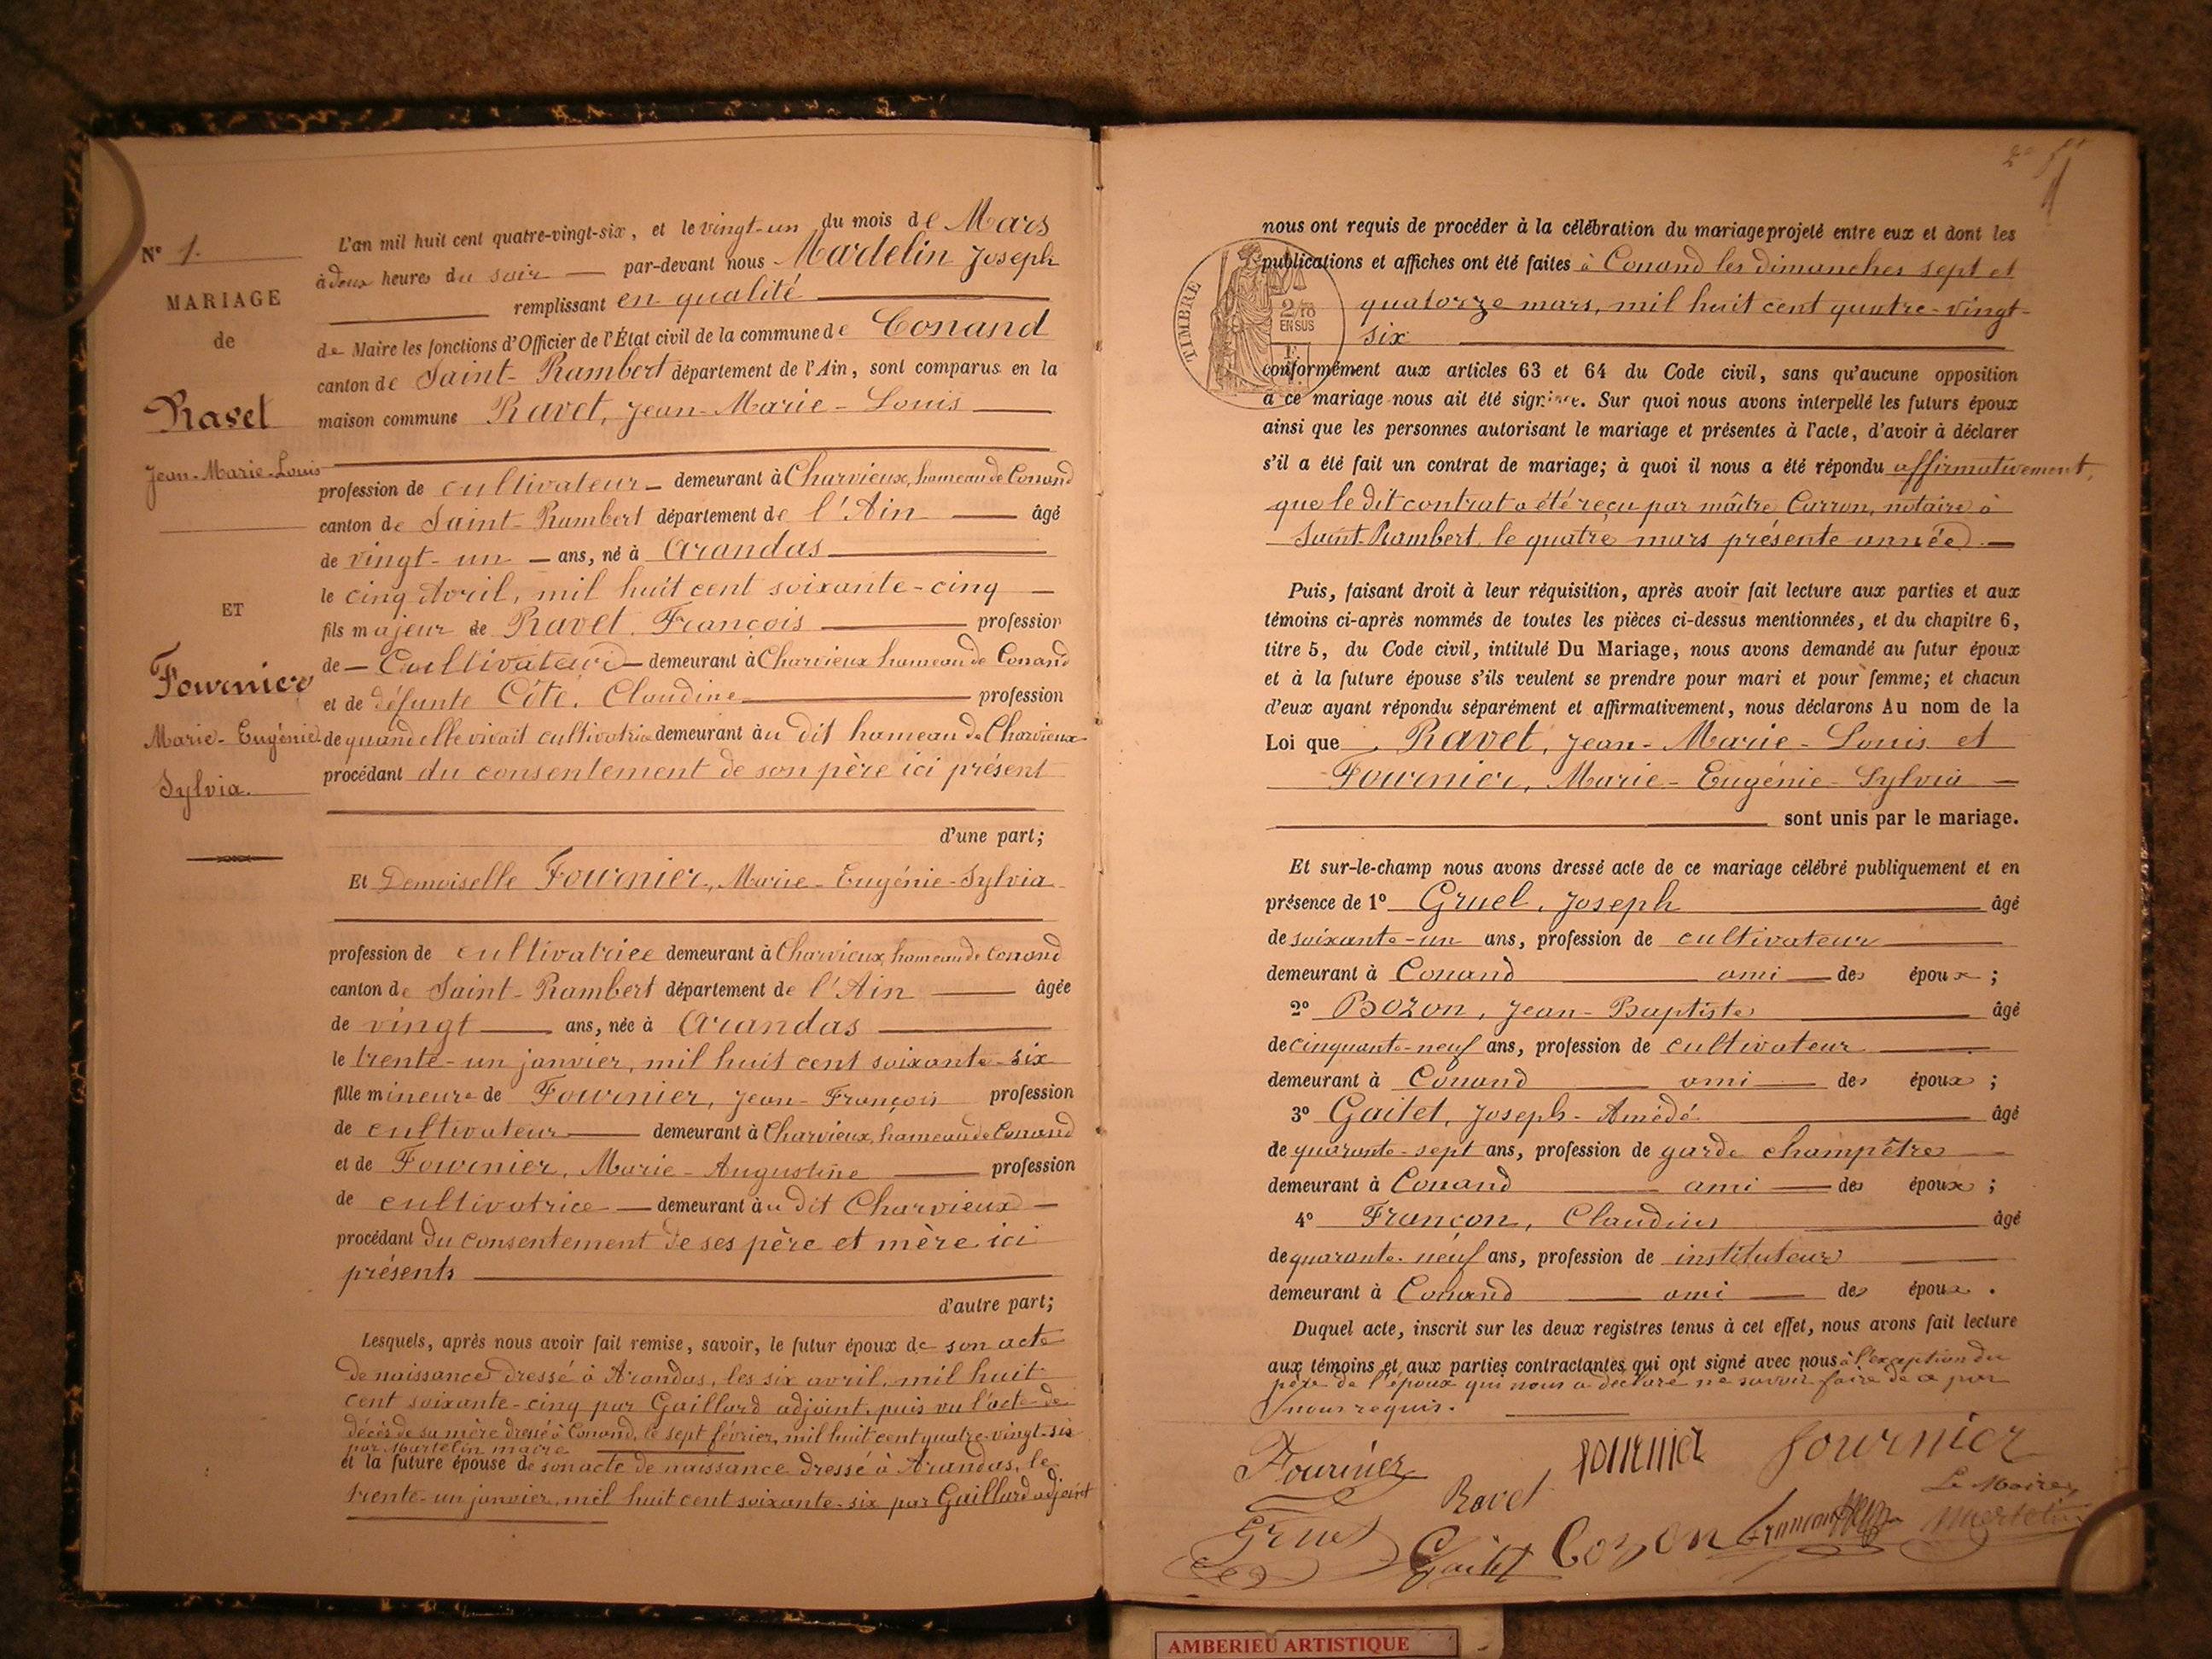 N° 1.
MARIAGE
de
Ravet
Jean-Marie-Louis
ET
Fournier
Marie-Eugénie
Sylvia.
L'an mil huit cent quatre-vingt-six, et le vingt-un du mois de Mars
à deux heures du soir par-devant nous Martelin Joseph
remplissant en qualité
de Maire les fonctions d'Officier de l'État civil de la commune de Conand
canton de Saint-Rambert département de l'Ain, sont comparus en la
maison commune Ravet, Jean-Marie-Louis
profession de cultivateur demeurant à Charvieux, hameau de Conand
canton de Saint-Rambert département de l'Ain âgé
de vingt-un ans, né à Arandas
le cinq Avril, mil huit cent soixante-cinq
fils majeur de Ravet, François profession
de Cultivateur demeurant à Charvieux hameau de Conand
et de défunte Côte, Claudine profession
de quand elle vivait cultivatrice demeurant au dit hameau de Charvieux
procédant du consentement de son père ici présent
d'une part;
Et Demoiselle Fournier, Marie-Eugénie-Sylvia
profession de cultivatrice demeurant à Charvieux, hameau de Conand
canton de Saint-Rambert département de l'Ain âgée
de vingt ans, née à Arandas
le trente-un janvier, mil huit cent soixante-six
fille mineure de Fournier, Jean-François profession
de cultivateur demeurant à Charvieux, hameau de Conand
et de Fournier, Marie-Augustine profession
de cultivatrice demeurant au dit Charvieux
procédant du consentement de ses père et mère ici
présents
d'autre part;
Lesquels, après nous avoir fait remise, savoir, le futur époux de son acte
de naissance dressé à Arandas, les six avril, mil huit
cent soixante-cinq par Gaillard adjoint, puis vu l'acte de
décès de sa mère dressé à Conand, le sept février, mil huit cent quatre-vingt-six
par Martelin maire
et la future épouse de son acte de naissance dressé à Arandas, le
trente-un janvier, mil huit cent soixante-six par Gaillard adjoint
nous ont requis de procéder à la célébration du mariage projeté entre eux et dont les
publications et affiches ont été faites à Conand les dimanches sept et
quatorze mars, mil huit cent quatre-vingt-
six
TIMBRE
2/10
EN SUS
conformément aux articles 63 et 64 du Code civil, sans qu'aucune opposition
à ce mariage nous ait été signifiée. Sur quoi nous avons interpellé les futurs époux
ainsi que les personnes autorisant le mariage et présentes à l'acte, d'avoir à déclarer
s'il a été fait un contrat de mariage; à quoi il nous a été répondu affirmativement,
que le dit contrat a été reçu par maître Carron, notaire à
Saint-Rambert, le quatre mars présente année.
Puis, faisant droit à leur réquisition, après avoir fait lecture aux parties et aux
témoins ci-après nommés de toutes les pièces ci-dessus mentionnées, et du chapitre 6,
titre 5, du Code civil, intitulé Du Mariage, nous avons demandé au futur époux
et à la future épouse s'ils veulent se prendre pour mari et pour femme; et chacun
d'eux ayant répondu séparément et affirmativement, nous déclarons Au nom de la
Loi que Ravet, Jean-Marie-Louis et
Fournier, Marie-Eugénie-Sylvia
sont unis par le mariage.
Et sur-le-champ nous avons dressé acte de ce mariage célébré publiquement et en
présence de 1° Gruel, Joseph âgé
de soixante-un ans, profession de cultivateur
demeurant à Conand ami des époux;
2° Bozon, Jean-Baptiste âgé
de cinquante-neuf ans, profession de cultivateur
demeurant à Conand ami des époux;
3° Gaitet, Joseph-Amédé âgé
de quarante-sept ans, profession de garde champêtre
demeurant à Conand ami des époux;
4° Françon, Claudius âgé
de quarante-neuf ans, profession de instituteur
demeurant à Conand ami des époux.
Duquel acte, inscrit sur les deux registres tenus à cet effet, nous avons fait lecture
aux témoins et aux parties contractantes qui ont signé avec nous à l'exception du
père de l'époux qui nous a déclaré ne savoir faire de ce par
nous requis.
Fournier Ravet Fournier Fournier
Le Maire,
Gruel Gaitet Bozon Françon Martelin
AMBERIEU ARTISTIQUE